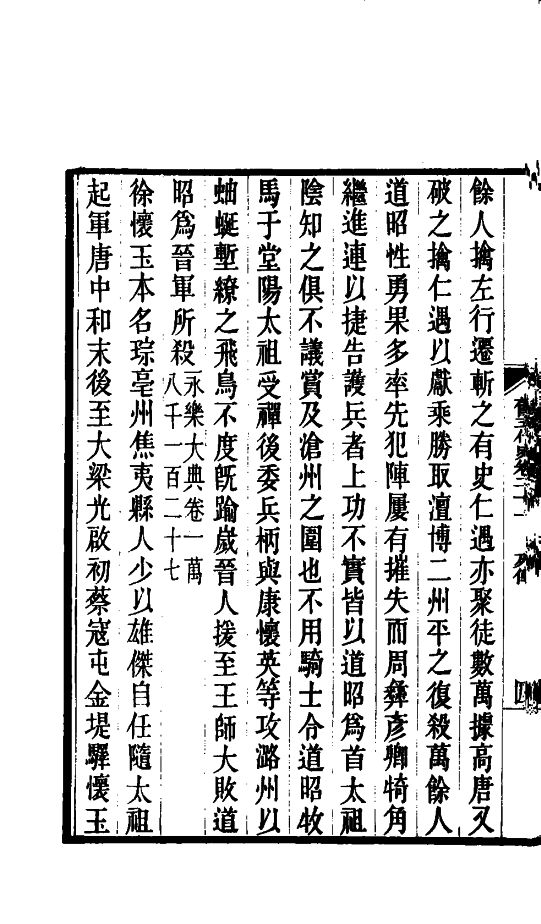 餘人擒左行遷斬之有史仁遇亦聚徒數萬據高唐又
破之擒仁遇以獻乘勝取澶博二州平之復殺萬餘人
道昭性勇果多率先犯陣屢有摧失而周彝彥卿犄角
繼進連以捷告護兵者上功不實皆以道昭爲首太祖
陰知之俱不議賞及滄州之圍也不用騎士令道昭牧
馬于堂陽太祖受禪後委兵柄與康懷英等攻潞州以
蚰蜒塹繚之飛鳥不度旣踰歲晉人援至王師大敗道
昭爲晉軍所殺永樂大典卷一萬
八千一百二十七
徐懷玉本名琮亳州焦夷縣人少以雄傑自任隨太祖
起軍唐中和末後至大梁光啟初蔡寇屯金堤驛懷玉